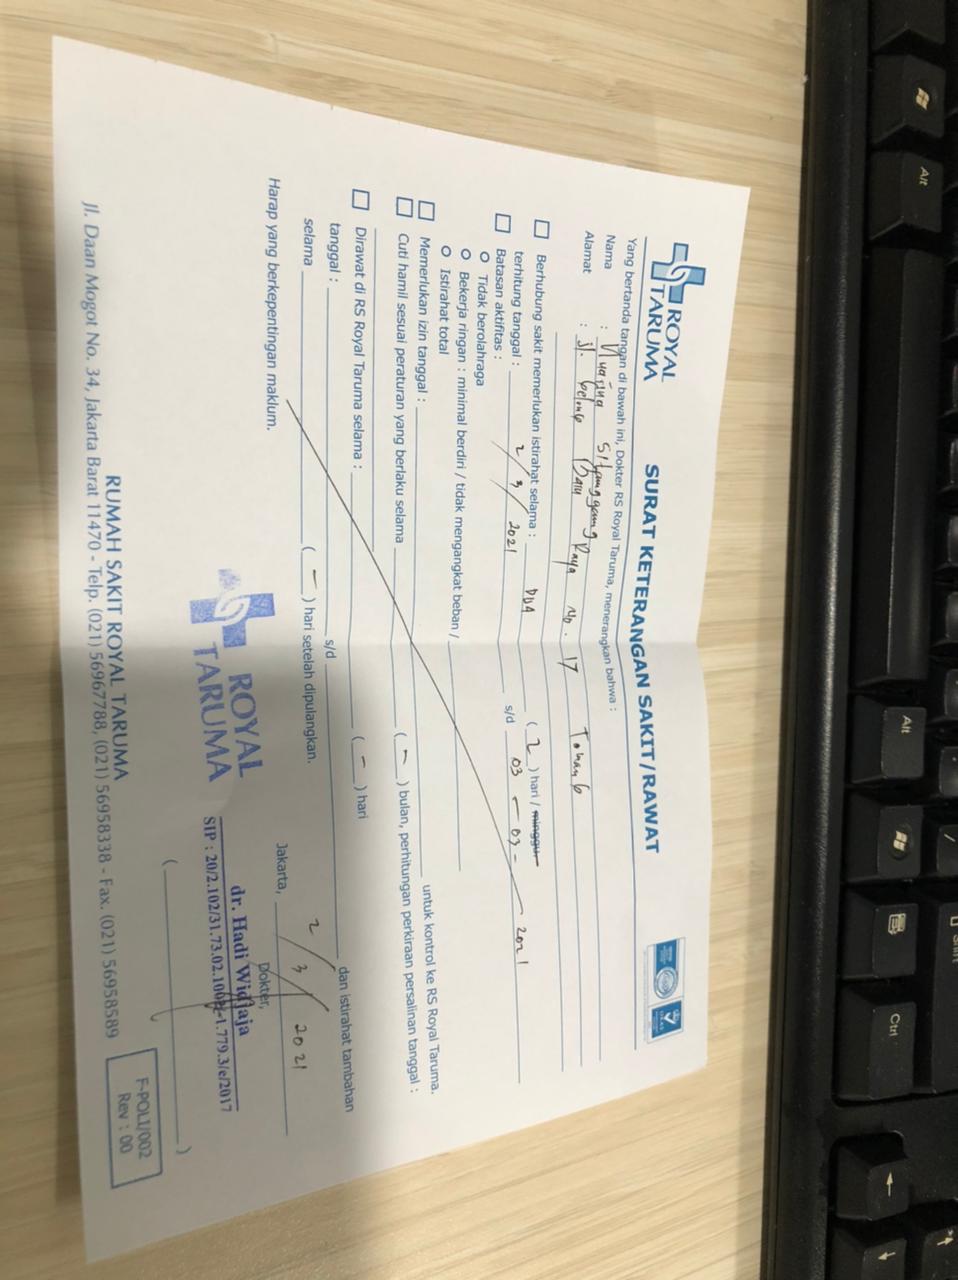 ROYAL
TARUMA
SURAT KETERANGAN SAKIT/RAWAT
Yang bertanda tangan di bawah ini; Dokter RS Royal Taruma, menerangkan bahwa :
Nama :
Alamat : Jl. Raya No. 17
Berhubung sakit memerlukan istirahat selama : DUA ( 2 ) hari / minggu
terhitung tanggal : 2/3/2021 s/d 03-03-2021
Batasan aktifitas :
Tidak berolahraga
Bekerja ringan : minimal berdiri / tidak mengangkat beban /
Istirahat total
Memerlukan izin tanggal : untuk kontrol ke RS Royal Taruma.
Cuti hamil sesuai peraturan yang berlaku selama ( - ) bulan, perhitungan perkiraan persalinan tanggal :
Dirawat di RS Royal Taruma selama : ( - ) hari
tanggal : s/d dan istirahat tambahan
selama ( - ) hari setelah dipulangkan.
Harap yang berkepentingan maklum.
Jakarta, 2/3/2021
Dokter,
ROYAL
TARUMA
dr. Hadi Widjaja
( )
RUMAH SAKIT ROYAL TARUMA
Jl. Daan Mogot No. 34, Jakarta Barat 11470 - Telp. (021) 56967788, (021) 56958338 - Fax. (021) 56958589
F-POLI/002
Rev : 00
Alt
Alt
Ctrl